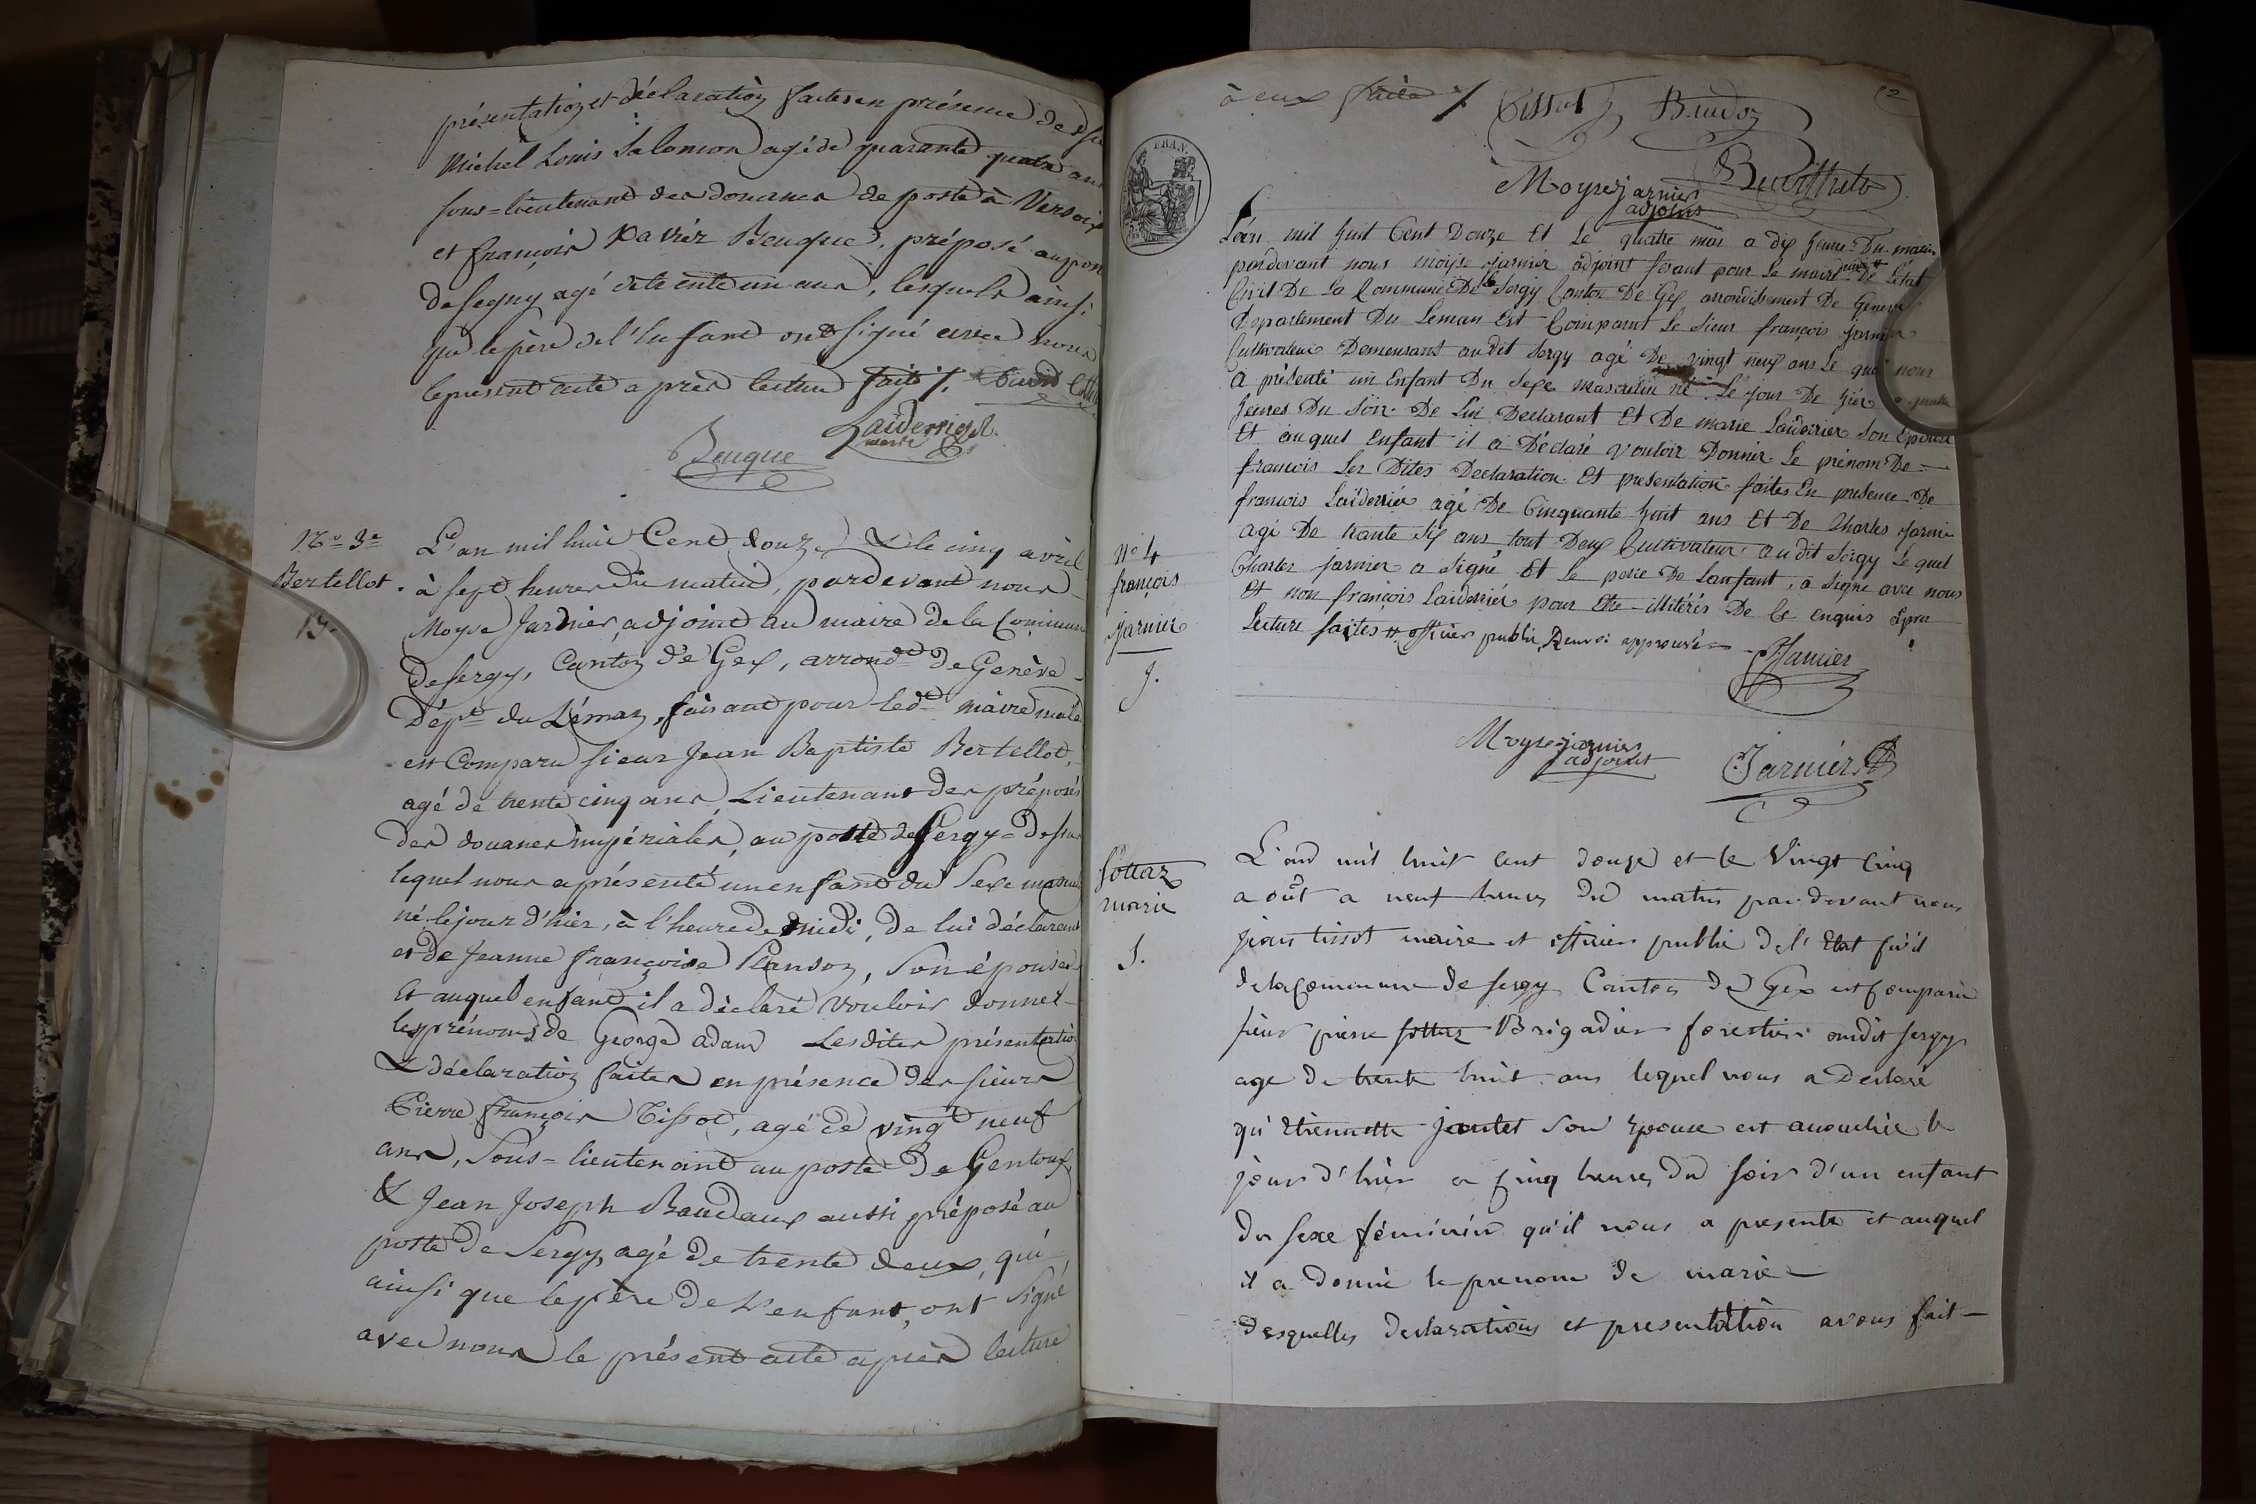 présentation et déclaration faites en présence de
Michel Louis Salomon agé de quarante quatre ans
sous-lieutenant des douanes de poste à Versoix
et françois Xavier Beuque, préposé au pon
de Segny agé de trente un ans, lesquels ainsi
que le père de l'Enfant ont signé avec nous
le présent acte apres lecture faite ./.
Laiderrier
maire
Beuque
No. 3e
Bertellot.
L'an mil huit Cent douze, & le cinq avril
à sept heures du matin, pardevant nous
Moyse Jarnier, adjoint au maire de la Commune
de Sergy, Canton de Gex, arrondt de Genève
Dépt du Léman, faisant pour led. maire
est Comparu sieur Jean Baptiste Bertellot,
agé de trente cinq ans, Lieutenant des préposés
des douanes impériales, au poste de Sergy-Dessus
lequel nous a présenté un enfant du Sexe mascu
né le jour d'hier, à l'heure de midi, de lui déclarant
et de Jeanne françoise Planson, Son épouse
et auquel enfant il a déclaré vouloir donner
les prénoms de George adam Lesdites présentatio
& déclaration faites en présence des sieurs
Pierre françois Tissot, agé de vingt neuf
ans, Sous-lieutenant au poste de
& Jean Joseph Baudaux aussi préposé au
poste de Sergy, agé de trente deux, qui
ainsi que le père de l'enfant, ont signé
avec nous le présent acte après lecture
2
à eux faite ./. Tissot
Moyse jarnier
adjoint
FRAN.
L'an mil huit Cent Douze Et Le quatre mai a dix heure Du matin
pardevant nous moyse Jarnier adjoint fesant pour Le maire # De L'état
Civil De La Commune De Sergy Canton De Gex arrondisement De Geneve
Departement Du Leman Est Comparut Le Sieur françois jarnier
Cultivateur Demeurant audit Sergy agé De vingt neuf ans Le quel nous
A présenté un Enfant Du Sexe masculin né Le jour De hier
heures Du Soir De Lui Declarant Et De marie Laiderrier Son Epouse
Et auquel Enfant il a Déclaré vouloir Donner Le prénom De
francois Les Dites Declaration Et presentation faites En presence De
francois Laiderrier agé De Cinquante huit ans Et De Charles jarnie
agé De trante Six ans tout Deux Cultivateur audit Sergy Le quel
Charles jarnier a Signé Et Le perre De Lanfant a Signe avec nous
Et non françois Laiderrier pour Etre illitérés De Ce enquis Apres
Lecture faites # officier public Renvoi approuvé
Jarnier
No 4
françois
jarnier
Moyse jarnier
adjoint
Jarnier
Sottaz
marie
L'an mil huit cent douze et le Vingt Cinq
août a neuf heures du matin par devant nous
jean tissot maire et officier public de l'Etat
de la Commune de Sergy Canton de Gex est Comparu
sieur pierre Sottaz Brigadier forestier audit Sergy
age de trente huit ans lequel nous a Declaré
qu'etiennette Son Epouse est accouchée le
jour d'hier a Cinq heures du Soir d'un enfant
du Sexe féminin qu'il nous a presenté et auquel
il a donné le prenom de marie
desquelles declarations et presentation avons fait